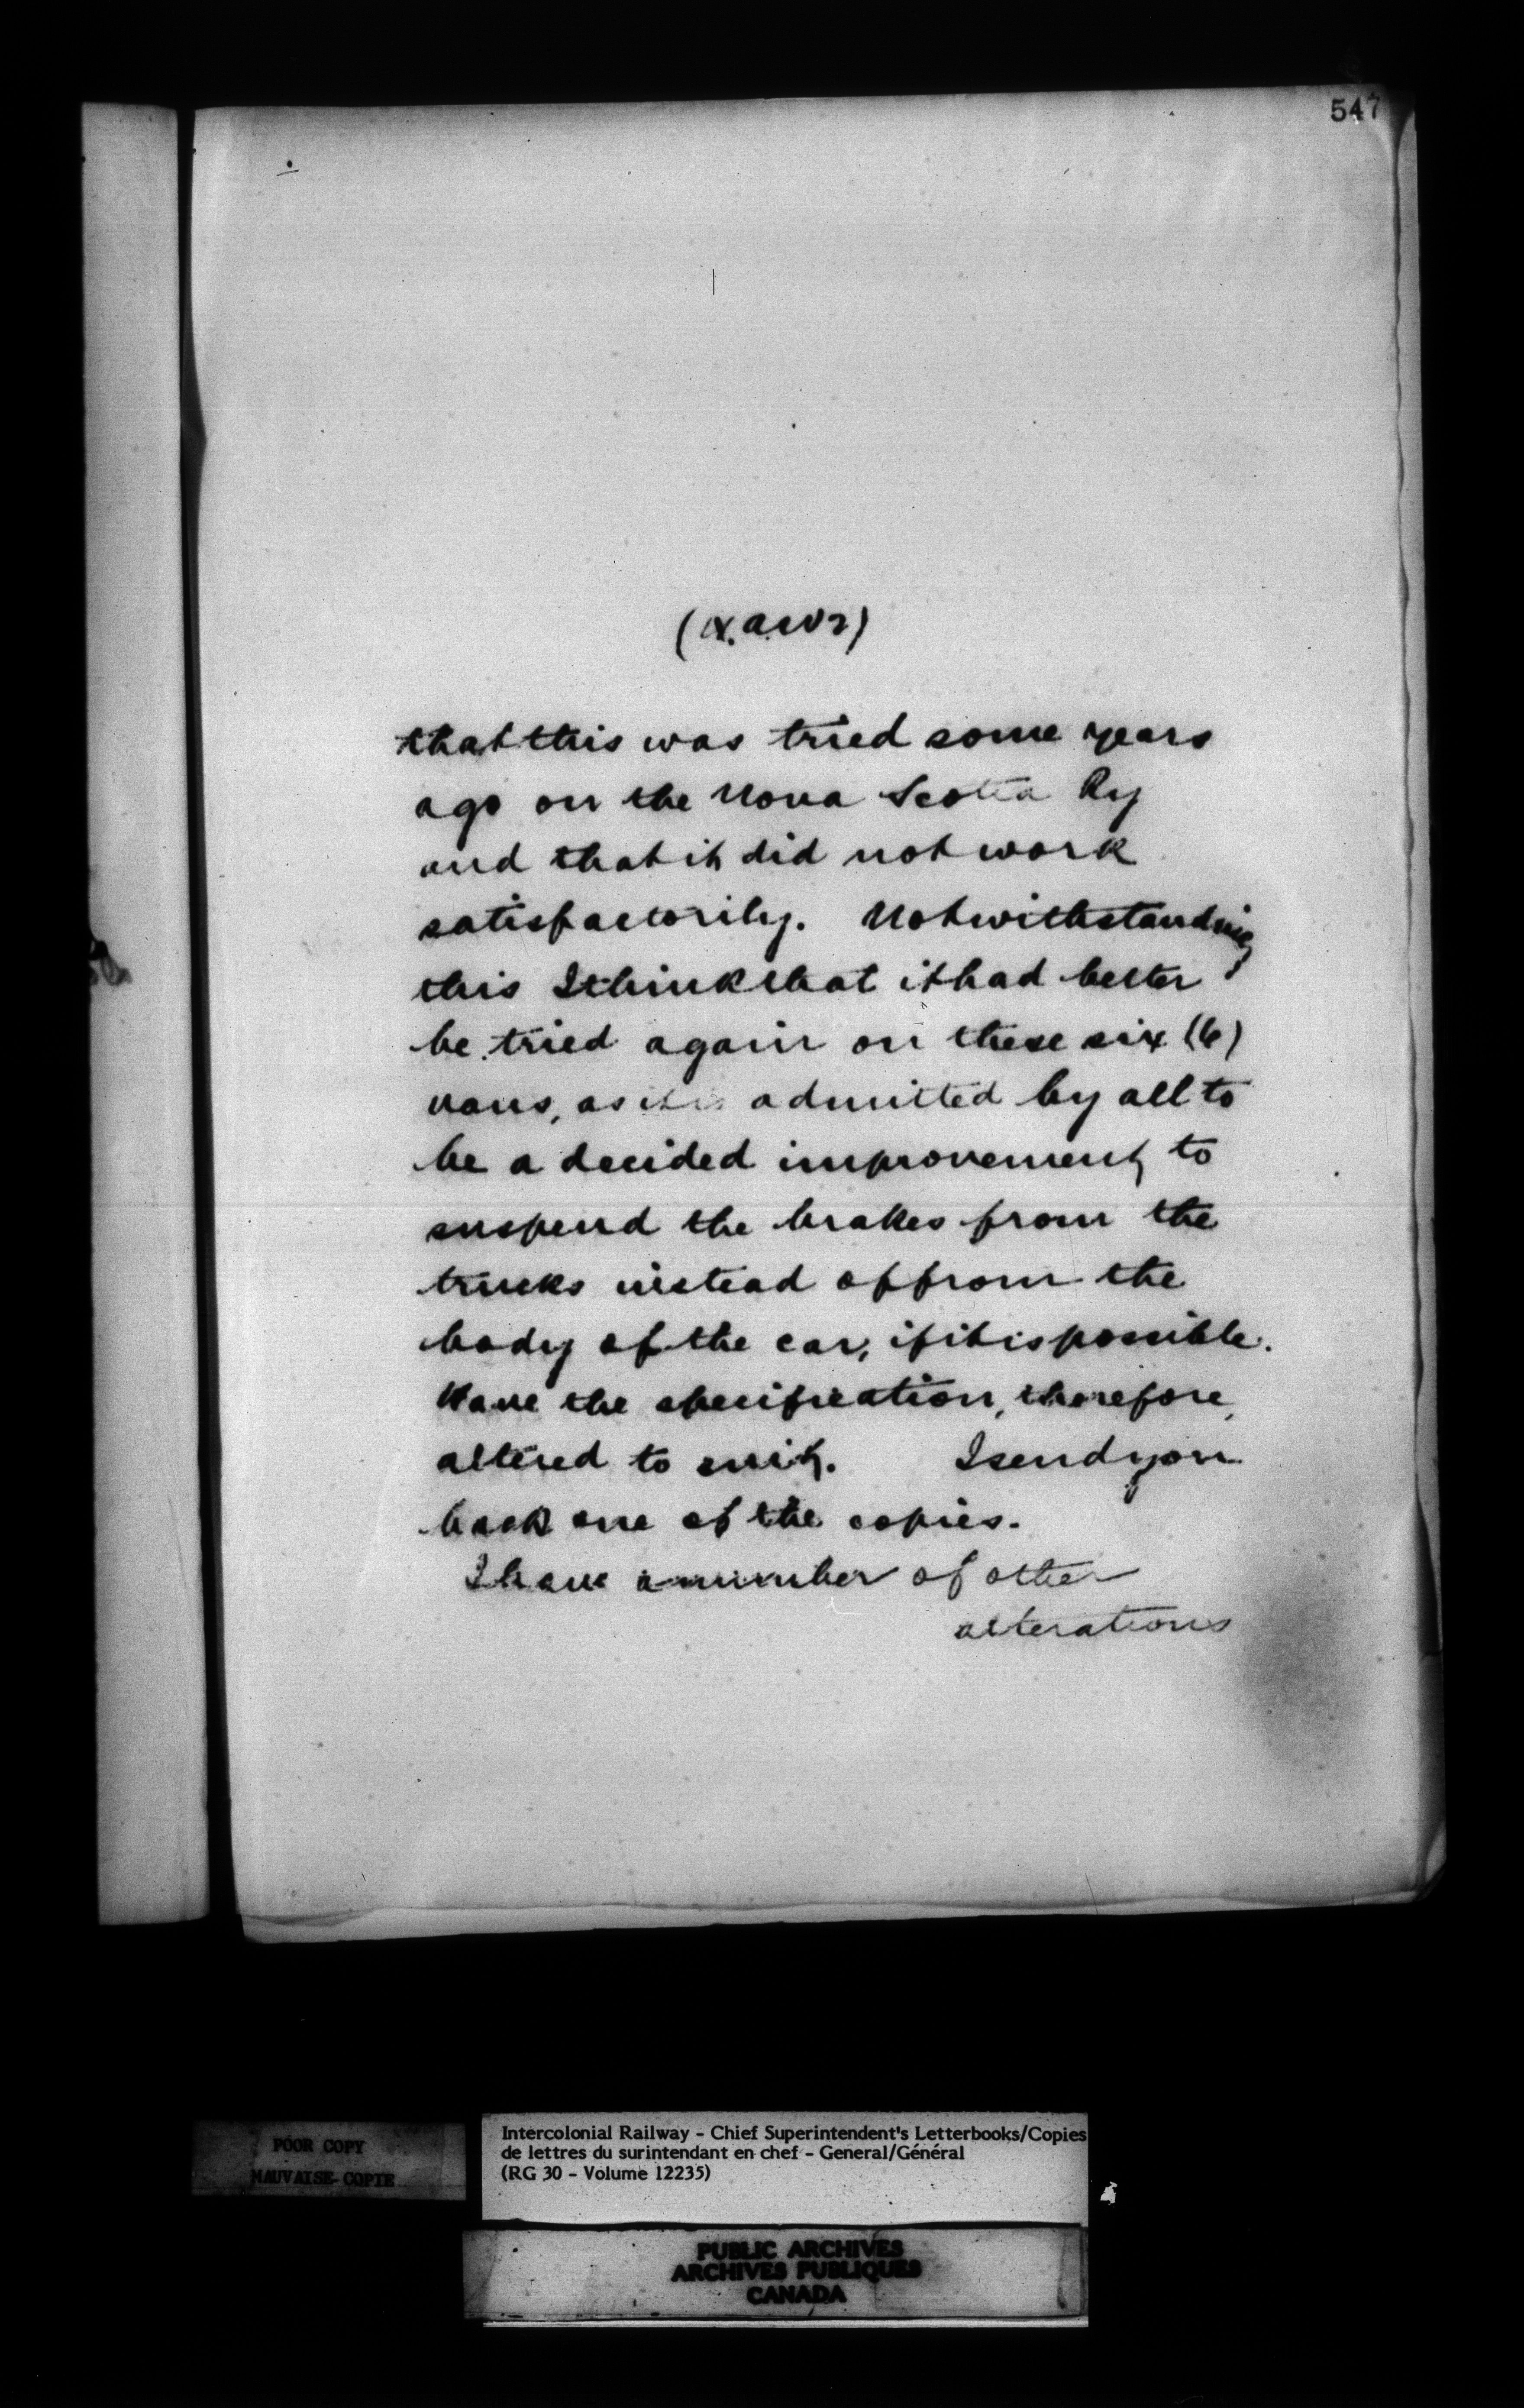 547
that this was tried some years
ago on the Nova Scotia Ry
and that it did not work
satisfactorily. Notwithstanding
this I think that it had better
be tried again on these six (6)
vans, as it is admitted by all to
be a decided improvement to
suspend the brakes from the
trucks instead of from the
body of the car, if it is possible.
Have the specification, therefore,
altered to suit. I send you
back one of the copies.
I have a number of other
alterations
POOR COPY
MAUVAISE COPIE
Intercolonial Railway - Chief Superintendent's Letterbooks/Copies
de lettres du surintendant en chef - General/Général
(RG 30 - Volume 12235)
PUBLIC ARCHIVES
ARCHIVES PUBLIQUES
CANADA